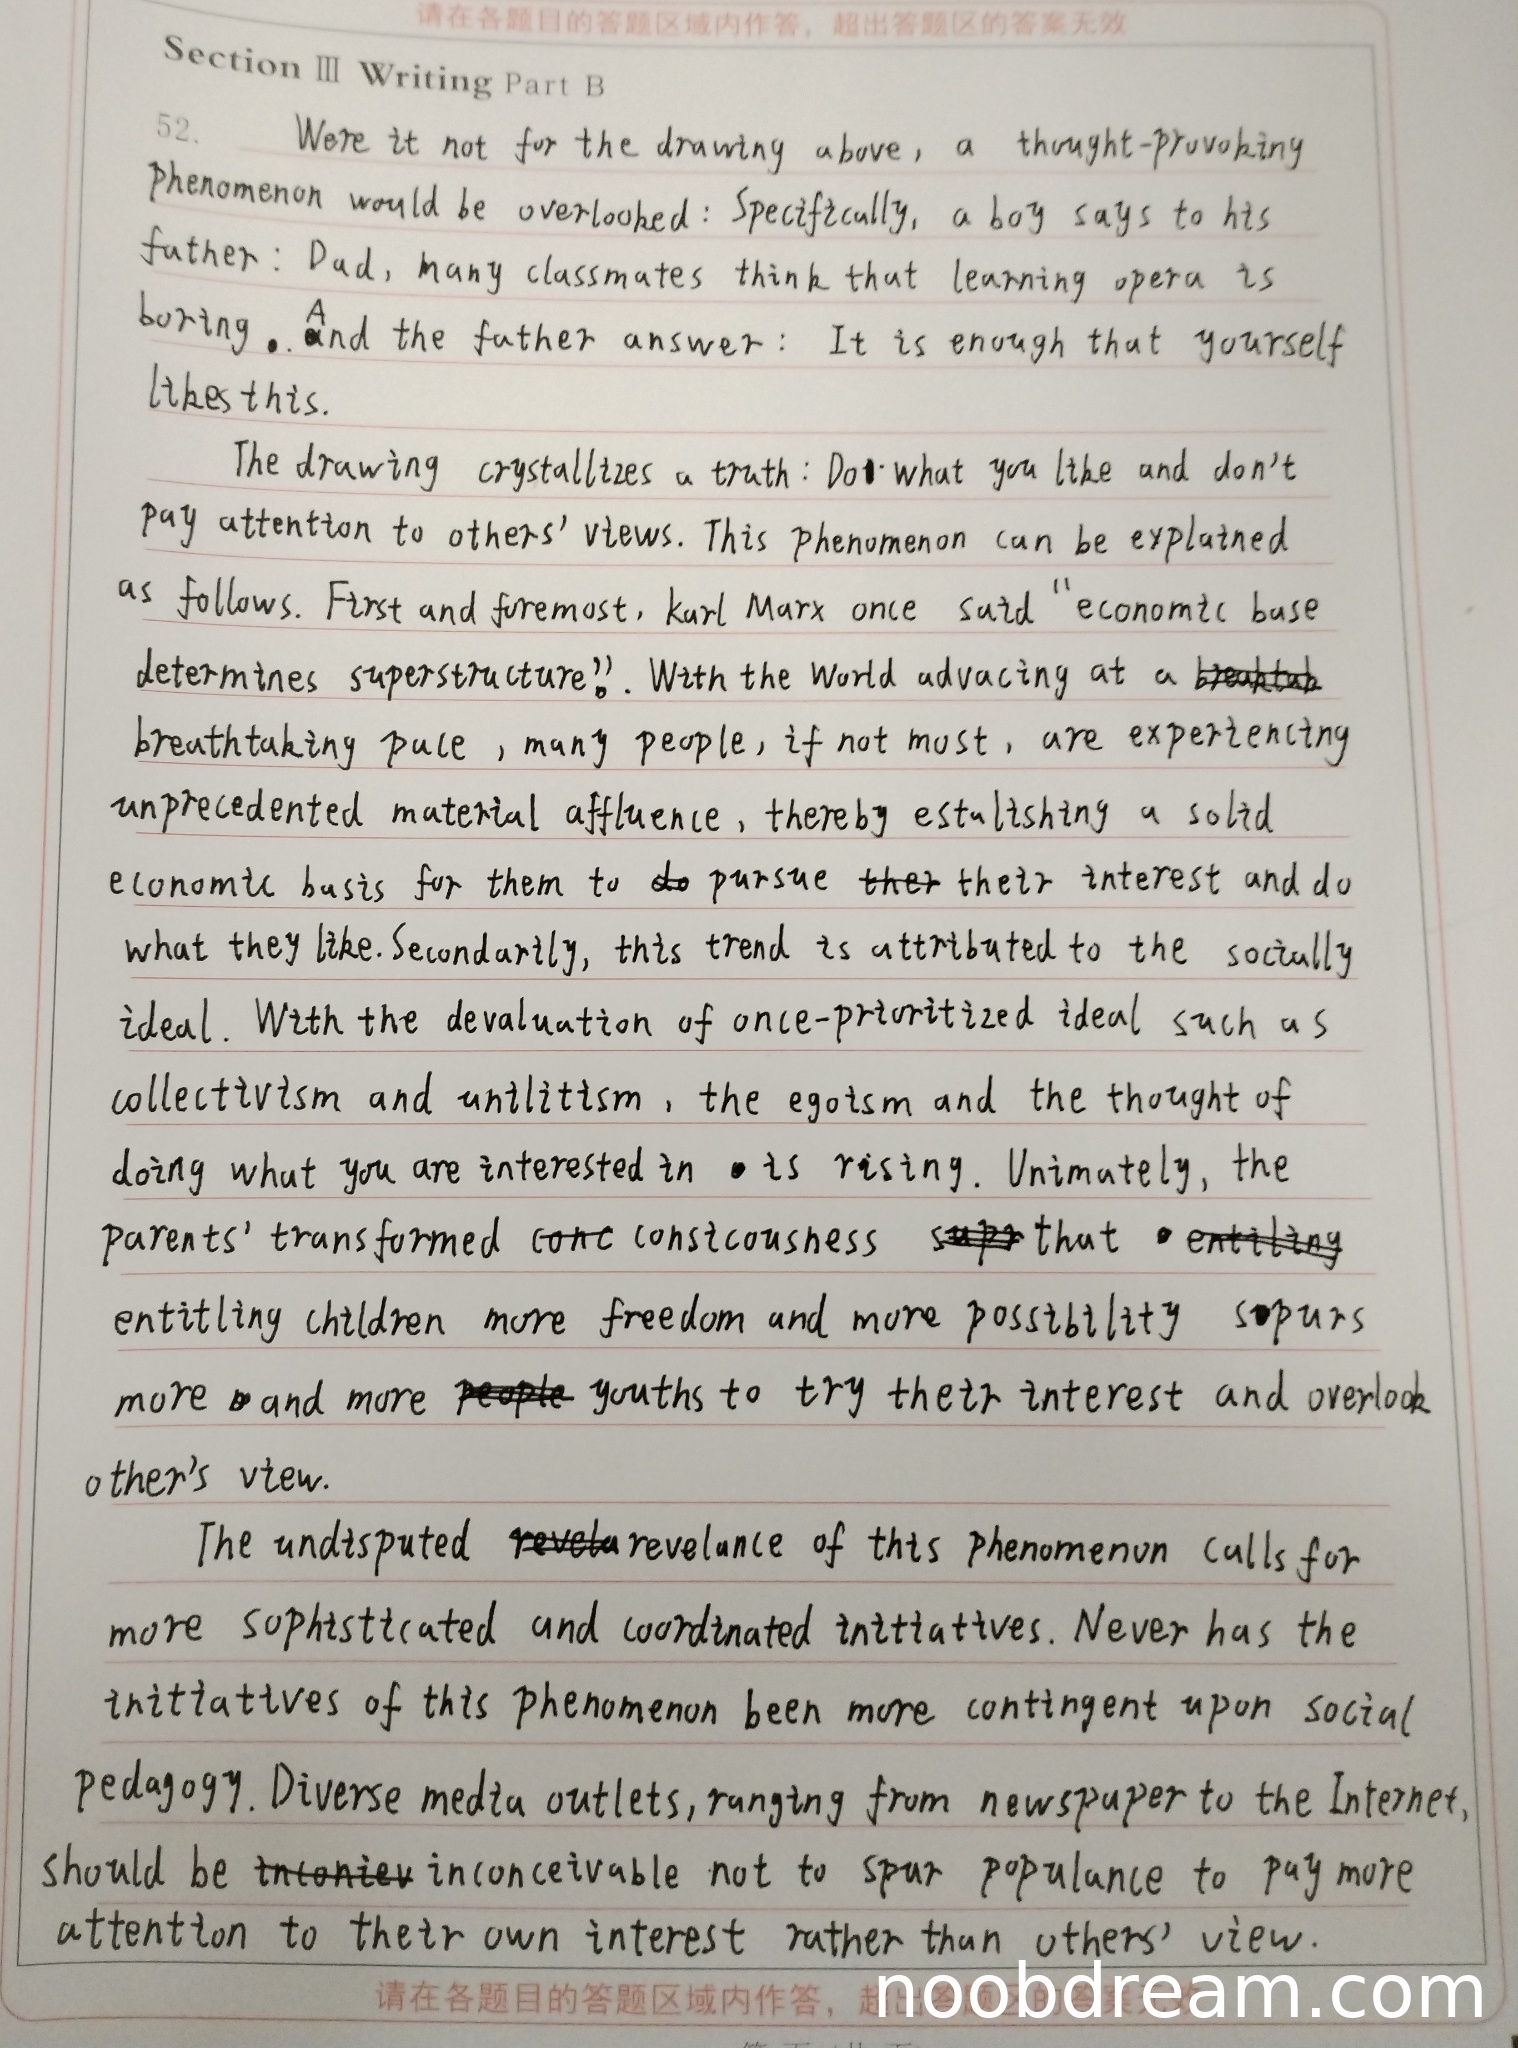 请在各题目的答题区域内作答，超出答题区的答案无效
Section Ⅲ Writing Part B
52. Were it not for the drawing above, a thought-provoking
phenomenon would be overlooked: Specifically, a boy says to his
father: Dad, many classmates think that learning opera is
boring. And the father answer: It is enough that yourself
likes this.
The drawing crystallizes a truth: Do what you like and don't
pay attention to others' views. This phenomenon can be explained
as follows. First and foremost, karl Marx once said "economic base
determines superstructure". With the World advacing at a
breathtaking pace, many people, if not most, are experiencing
unprecedented material affluence, thereby estalishing a solid
economic basis for them to pursue their interest and do
what they like. Secondarily, this trend is attributed to the socially
ideal. With the devaluation of once-prioritized ideal such as
collectivism and unilitism, the egoism and the thought of
doing what you are interested in is rising. Unimately, the
parents' transformed consicousness that
entitling children more freedom and more possibility spurs
more and more youths to try their interest and overlook
other's view.
The undisputed revelance of this phenomenon calls for
more sophisticated and coordinated initiatives. Never has the
initiatives of this phenomenon been more contingent upon social
pedagogy. Diverse media outlets, ranging from newspaper to the Internet,
should be inconceivable not to spur populance to pay more
attention to their own interest rather than others' view.
请在各题目的答题区域内作答，超出答题区的答案无效
noobdream.com